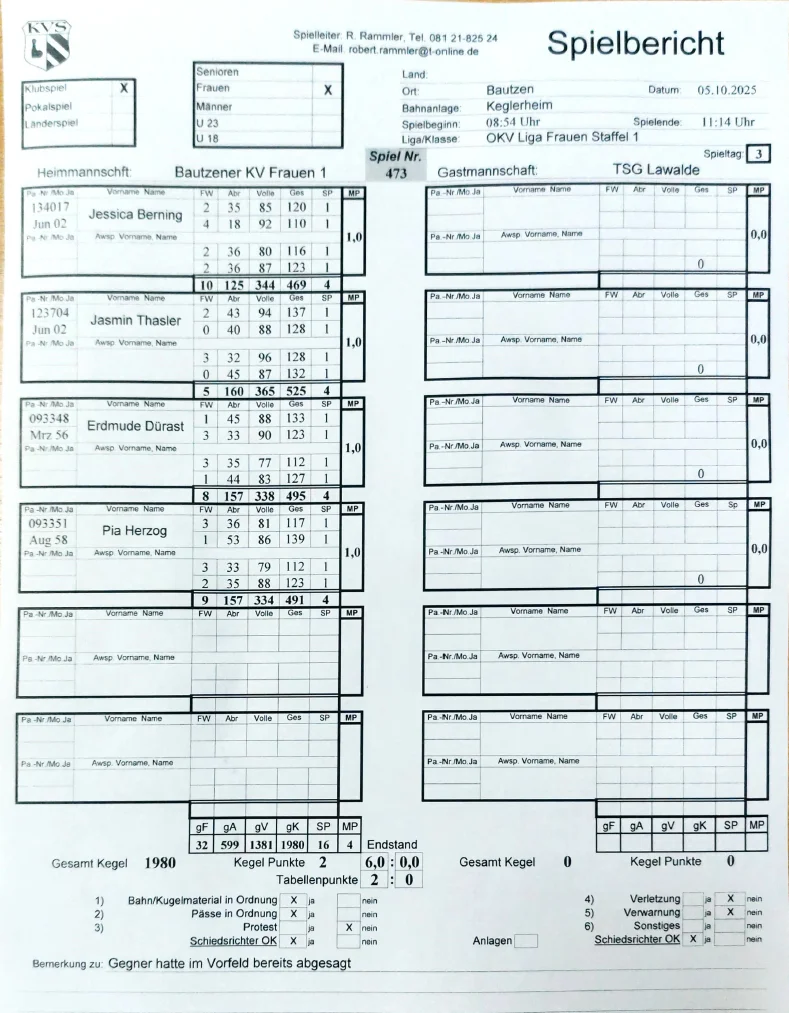 KVS
Spielleiter: R. Rammler, Tel. 081 21-825 24
E-Mail: robert.rammler@t-online.de
Spielbericht
Klubspiel X
Pokalspiel
Länderspiel
Senioren
Frauen X
Männer
U 23
U 18
Land:
Ort: Bautzen Datum: 05.10.2025
Bahnanlage: Keglerheim
Spielbeginn: 08:54 Uhr Spielende: 11:14 Uhr
Liga/Klasse: OKV Liga Frauen Staffel 1
Spieltag: 3
Spiel Nr.
473
Heimmannschft: Bautzener KV Frauen 1
Gastmannschaft: TSG Lawalde
Pa.-Nr./Mo.Ja Vorname Name FW Abr Volle Ges SP MP
134017 Jessica Berning 2 35 85 120 1
Jun 02 4 18 92 110 1
Pa.-Nr./Mo.Ja Awsp. Vorname, Name 1,0
2 36 80 116 1
2 36 87 123 1
10 125 344 469 4
Pa.-Nr./Mo.Ja Vorname Name FW Abr Volle Ges SP MP
123704 Jasmin Thasler 2 43 94 137 1
Jun 02 0 40 88 128 1
Pa.-Nr./Mo.Ja Awsp. Vorname, Name 1,0
3 32 96 128 1
0 45 87 132 1
5 160 365 525 4
Pa.-Nr./Mo.Ja Vorname Name FW Abr Volle Ges SP MP
093348 Erdmude Dürast 1 45 88 133 1
Mrz 56 3 33 90 123 1
Pa.-Nr./Mo.Ja Awsp. Vorname, Name 1,0
3 35 77 112 1
1 44 83 127 1
8 157 338 495 4
Pa.-Nr./Mo.Ja Vorname Name FW Abr Volle Ges SP MP
093351 Pia Herzog 3 36 81 117 1
Aug 58 1 53 86 139 1
Pa.-Nr./Mo.Ja Awsp. Vorname, Name 1,0
3 33 79 112 1
2 35 88 123 1
9 157 334 491 4
Pa.-Nr./Mo.Ja Vorname Name FW Abr Volle Ges SP MP
Pa.-Nr./Mo.Ja Awsp. Vorname, Name
Pa.-Nr./Mo.Ja Vorname Name FW Abr Volle Ges SP MP
Pa.-Nr./Mo.Ja Awsp. Vorname, Name
Pa.-Nr./Mo.Ja Vorname Name FW Abr Volle Ges SP MP
Pa.-Nr./Mo.Ja Awsp. Vorname, Name 0,0
0
Pa.-Nr./Mo.Ja Vorname Name FW Abr Volle Ges SP MP
Pa.-Nr./Mo.Ja Awsp. Vorname, Name 0,0
0
Pa.-Nr./Mo.Ja Vorname Name FW Abr Volle Ges SP MP
Pa.-Nr./Mo.Ja Awsp. Vorname, Name 0,0
0
Pa.-Nr./Mo.Ja Vorname Name FW Abr Volle Ges Sp MP
Pa.-Nr./Mo.Ja Awsp. Vorname, Name 0,0
0
Pa.-Nr./Mo.Ja Vorname Name FW Abr Volle Ges SP MP
Pa.-Nr./Mo.Ja Awsp. Vorname, Name
Pa.-Nr./Mo.Ja Vorname Name FW Abr Volle Ges SP MP
Pa.-Nr./Mo.Ja Awsp. Vorname, Name
gF gA gV gK SP MP
32 599 1381 1980 16 4 Endstand
gF gA gV gK SP MP
Gesamt Kegel 1980 Kegel Punkte 2 6,0 : 0,0 Gesamt Kegel 0 Kegel Punkte 0
Tabellenpunkte 2 : 0
1) Bahn/Kugelmaterial in Ordnung X ja nein
2) Pässe in Ordnung X ja nein
3) Protest ja X nein
Schiedsrichter OK X ja nein
4) Verletzung ja X nein
5) Verwarnung ja X nein
6) Sonstiges ja nein
Anlagen Schiedsrichter OK X ja nein
Bemerkung zu: Gegner hatte im Vorfeld bereits abgesagt